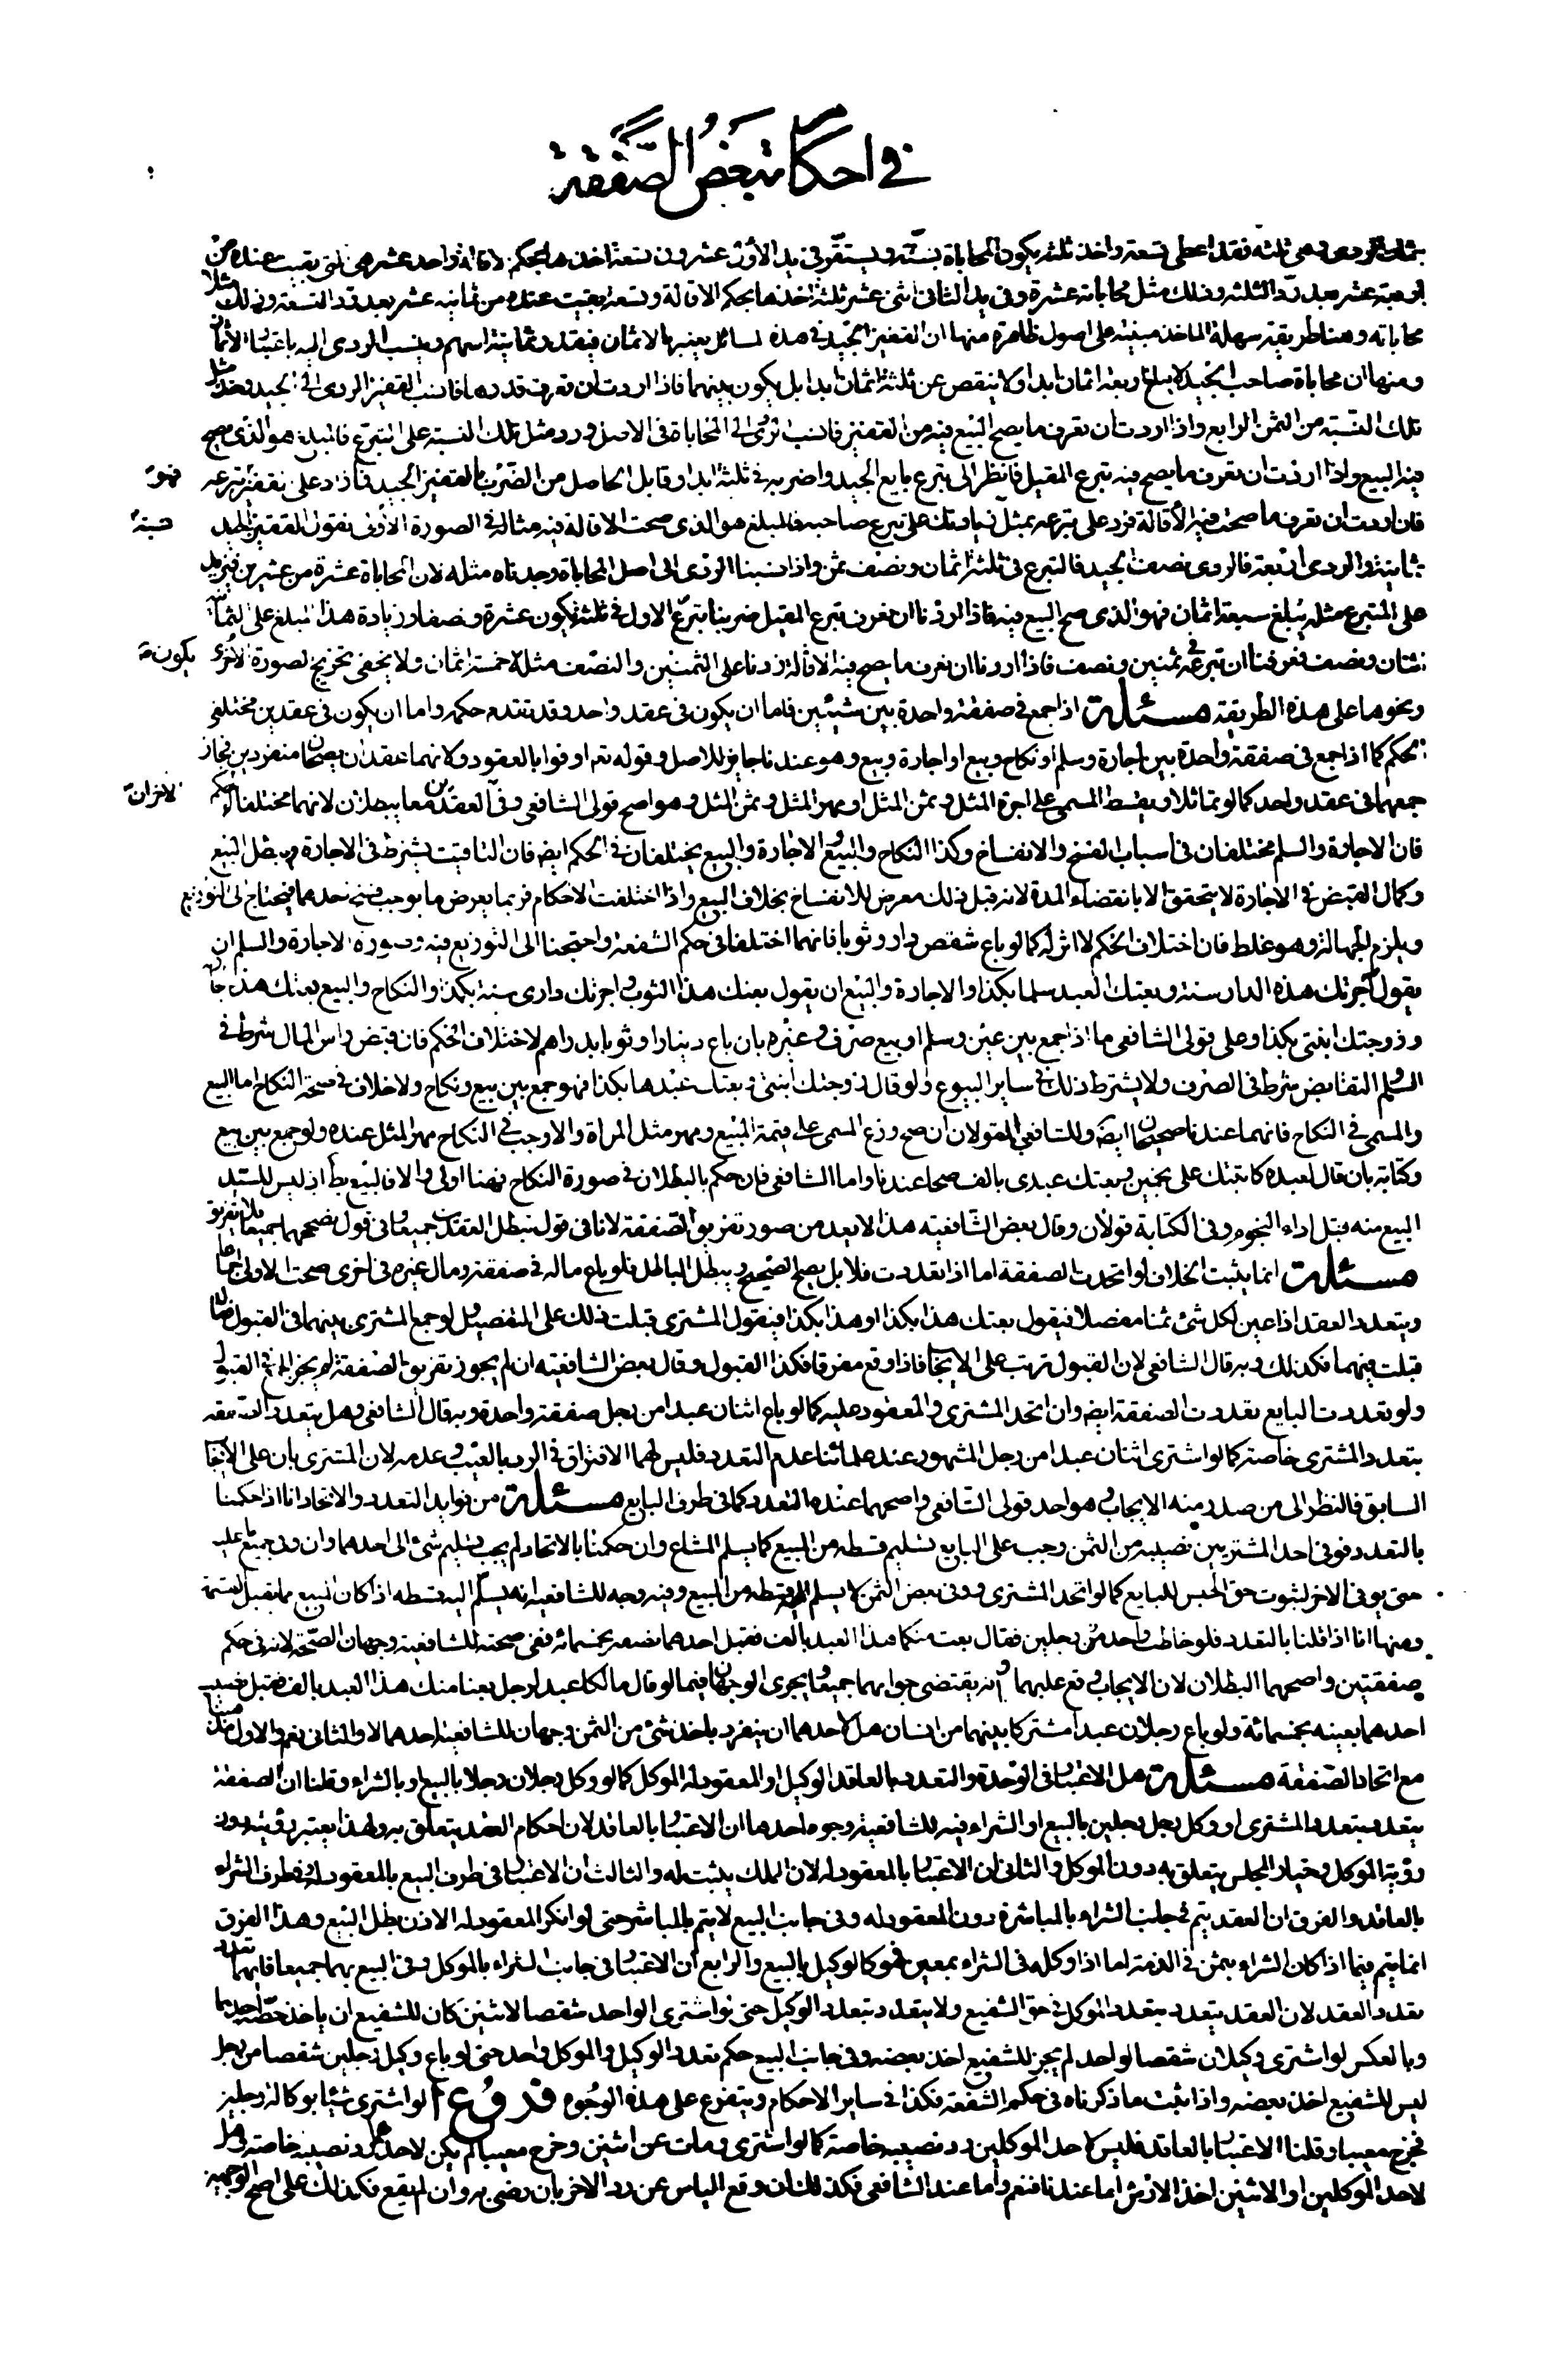 في احكام تبعض الصفقة
ثلثة فقد اعطى تسعة واخذ ثلثة يكون المحاباة بستة ويستقر في يد الاول عشرون تسعة اخذها بحكم الاقالة واحد عشر هي التي بقيت عنده من
اربعة عشر بعد رد الثلثة وذلك مثل محاباته عشرة وفي يد الثاني اثنى عشر ثلثة اخذها بحكم الاقالة وتسعة بقيت عنده من ثمانية عشر بعد رد التسعة وذلك مثلا
محاباته وهنا طريقة سهلة الماخذ مبنية على اصول ظاهرة منها ان القفيز الجيد في هذه المسائل يعتبر بالاثمان فيقدر ثمانية اسهم وينسب الردى اليه باعتبار الاثمان
ومنها ان محاباة صاحب الجيد لا يبلغ اربعة اثمان ابدا ولا ينقص عن ثلثة اثمان ابدا بل يكون بينهما فاذا اردت ان تعرف قدرها فانسب القفيز الردى الى الجيد وخذ مثل
تلك النسبة من الثمن الرابع واذا اردت ان تعرف ما يصح البيع فيه من القفيز فانسب الردى الى المحاباة في الاصل وزد مثل تلك النسبة على التبرع فالمبلغ هو الذي يصح
فيه البيع واذا اردت ان تعرف ما يصح فيه تبرع المقيل فانظر الى تبرع بايع الجيد واضربه في ثلثة ابدا وقابل الحاصل من الضرب بالقفيز الجيد فما زاد على القفيز تبرعه
فهو
فان اردت ان تعرف ما صحت فيه الاقالة فزد على تبرعه بمثل زيادتك على تبرع صاحبه فالمبلغ هو الذي صحت الاقالة فيه مثاله في الصورة الاولى نقول القفيز الجيد
نسبة
ثمانية والردى اربعة فالردى نصف الجيد فالتبرع في ثلثة اثمان ونصف ثمن واذا نسبنا الردى الى اصل المحاباة وجدناه مثله لان المحاباة عشرة من عشرين فنزيد
على التبرع مثله يبلغ سبعة اثمان فهو الذي صح البيع فيه فاذا اردنا ان نعرف تبرع المقيل ضربنا تبرع الاول في ثلثة يكون عشرة ونصفا وزيادة هذا المبلغ على الثمانية
اثنان ونصف فعرفنا ان تبرعه في ثمنين ونصف فاذا اردنا ان نعرف ما يصح فيه الاقالة زدنا على الثمنين والنصف مثله خمسة اثمان ولا يخفى تخريج الصورة الاخرى
يكون
ونحوها على هذه الطريقة مسئلة اذا جمع في صفقة واحدة بين شيئين فاما ان يكون في عقد واحد وقد تقدم حكمه واما ان يكون في عقدين مختلفي
الحكم كما اذا جمع في صفقة واحدة بين اجارة وسلم او نكاح وبيع او اجارة وبيع وهو عندنا جايز للاصل وقوله تع اوفوا بالعقود ولانهما عقدان يصحان منفردين فجاز
جمعهما في عقد واحد كما لو تماثلا ويقسط المسمى على اجرة المثل وثمن المثل او مهر المثل وثمن المثل وهو اصح قولي الشافعي وفي الاخر ان العقدين معا يبطلان لانهما مختلفا الحكم
الاخر ان
فان الاجارة والسلم مختلفان في اسباب الفسخ والانفساخ وكذا النكاح والبيع والاجارة والبيع يختلفان في الحكم ايضا فان التاقيت يشترط في الاجارة ويبطل البيع
وكمال القبض في الاجارة لا يتحقق الا بانقضاء المدة لانه قبل ذلك معرض للانفساخ بخلاف البيع واذا اختلفت الاحكام فربما يعرض ما يوجب فسخ احدهما فيحتاج الى التوزيع
ويلزم الجهالة وهو غلط فان اختلاف الحكم لا اثر له كما لو باع شقص دار وثوبا فانهما اختلفا في حكم الشفعة واحتجنا الى التوزيع فيه وصورة الاجارة والسلم ان
يقول آجرتك هذه الدار سنة وبعتك العبد سلما بكذا والاجارة والبيع ان يقول بعتك هذا الثوب واجرتك داري سنة بكذا والنكاح والبيع بعتك هذا بكذا
وزوجتك ابنتي بكذا وعلى قولي الشافعي ما اذا جمع بين عين وسلم او بيع صرف وغيره بان باع دينارا وثوبا بدراهم لاختلاف الحكم فان قبض راس المال شرط في
السلم التقابض شرط في الصرف ولا يشترط ذلك في ساير البيوع ولو قال زوجتك ابنتي وبعتك عبدها بكذا فهو جمع بين بيع ونكاح ولا خلاف في صحة النكاح اما البيع
والمسمى في النكاح فانهما عندنا صحيحان ايضا وللشافعي القولان ان صح وزع المسمى على قيمة المبيع ومهر مثل المراة والا وجب في النكاح مهر المثل عنده ولو جمع بين بيع
وكتابة بان قال لعبده كاتبتك على نجمين وبعتك عبدي بالف صحا عندنا واما الشافعي فان حكم بالبطلان في صورة النكاح فهنا اولى والا فالبيع بط اذ ليس للسيد
البيع منه قبل اداء النجوم وفي الكتابة قولان وقال بعض الشافعية هذا لا يعد من صور تفريق الصفقة لانا في قول نبطل العقدين جميعا وفي قول نصححهما جميعا بلا تفريق
مسئلة انما يثبت الخلاف لو اتحدت الصفقة اما اذا تعددت فلا بل يصح الصحيح ويبطل الباطل فلو باع ماله في صفقة ومال غيره في اخرى صحت الاولى اجماعا
ويتعدد العقد اذا عين لكل شئ ثمنا مفصلا فيقول بعتك هذا بكذا وهذا بكذا فيقول المشتري قبلت ذلك على التفصيل ولو جمع المشتري بينهما في القبول فقال
قبلت فيهما فكذلك وبه قال الشافعي لان القبول ترتب على الايجاب فاذا وقع مفرقا فكذا القبول وقال بعض الشافعية ان لم يجوز تفريق الصفقة لم يجز الجمع في القبول
ولو تعددت البايع تعددت الصفقة ايضا وان اتحد المشتري والمعقود عليه كما لو باع اثنان عبدا من رجل صفقة واحدة وبه قال الشافعي وهل يتعدد الصفقة
بتعدد المشتري خاصة كما لو اشترى اثنان عبدا من رجل المشهور عند علمائنا عدم التعدد فليس لهما الافتراق في الرد بالعيب وعدمه لان المشتري بان على الايجاب
السابق فالنظر الى من صدر منه الايجاب وهو احد قولي الشافعي واصحهما عنده التعدد كما في طرف البايع مسئلة من فوايد التعدد والاتحاد انا اذا حكمنا
بالتعدد فوفى احد المشتريين نصيبه من الثمن وجب على البايع تسليم قسطه من المبيع كما يسلم المشاع وان حكمنا بالاتحاد لم يجب تسليم شئ الى احدهما وان وفى جميع ما عليه
حتى يوفى الاخر لثبوت حق الحبس للبايع كما لو اتحد المشتري ووفى بعض الثمن لا يسلم اليه قسطه من المبيع وفيه وجه للشافعية انه يسلم اليه قسطه اذا كان المبيع مما يقبل القسمة
ومنها انا اذا قلنا بالتعدد فلو خاطب واحد من رجلين فقال بعت منكما هذا العبد بالف فقبل احدهما نصفه بخمسمائة ففي صحته للشافعية وجهان الصحة لانه في حكم
صفقتين واصحهما البطلان لان الايجاب وقع عليهما وانه يقتضي جوابهما جميعا ويجرى الوجهان فيما لو قال مالكا عبد لرجل بعنا منك هذا العبد بالف فقبل نصيب
احدهما بعينه بخمسمائة ولو باع رجلان عبدا مشتركا بينهما من انسان هل لاحدهما ان ينفرد باخذ شئ من الثمن وجهان للشافعية احدهما لا والثاني نعم والاول مبني
مع اتحاد الصفقة مسئلة هل الاعتبار في الوحدة والتعدد بالعاقد الوكيل او المعقود له الموكل كما لو وكل رجلان رجلا بالبيع او بالشراء وقلنا ان الصفقة
يتعدد بتعدد المشتري او وكل رجل رجلين بالبيع او الشراء فيه للشافعية وجوه احدها ان الاعتبار بالعاقد لان احكام العقد يتعلق به ولهذا يعتبر رؤيته دون
رؤية الموكل وخيار المجلس يتعلق به دون الموكل والثاني ان الاعتبار بالمعقود له لان الملك يثبت له والثالث ان الاعتبار في طرف البيع بالمعقود له وفي طرف الشراء
بالعاقد والفرق ان العقد يتم في جانب الشراء بالمباشرة دون المعقود له وفي جانب البيع لا يتم بالمباشر حتى لو انكر المعقود له الاذن بطل البيع وهذا الفرق
انما يتم فيما اذا كان الشراء بثمن في الذمة اما اذا وكله في الشراء بمعين فهو كالوكيل بالبيع والرابع ان الاعتبار في جانب الشراء بالموكل وفي البيع بهما جميعا فايهما تعدد
تعدد العقد لان العقد يتعدد بتعدد الموكل في حق الشفيع ولا يتعدد بتعدد الوكيل حتى لو اشترى الواحد شقصا لاثنين كان للشفيع ان ياخذ حصة احدهما
وبالعكس لو اشترى وكيلان شقصا لواحد لم يجز للشفيع اخذ بعضه وفي جانب البيع حكم تعدد الوكيل والموكل واحد حتى لو باع وكيل رجلين شقصا من رجل
ليس للشفيع اخذ بعضه واذا ثبت ما ذكرناه في حكم الشفعة فكذا في ساير الاحكام ويتفرع على هذه الوجوه فروع ا لو اشترى شيئا بوكالة رجلين
فخرج معيبا وقلنا الاعتبار بالعاقد فليس لاحد الموكلين رد نصيبه خاصة كما لو اشترى ومات عن اثنين وخرج معيبا لم يكن لاحدهما رد نصيبه خاصة وهل
لاحد الموكلين او الاثنين اخذ الارش اما عندنا فنعم واما عند الشافعي فكذلك ان وقع الياس عن رد الاخر بان رضى به وان لم يقع فكذلك على اصح الوجهين